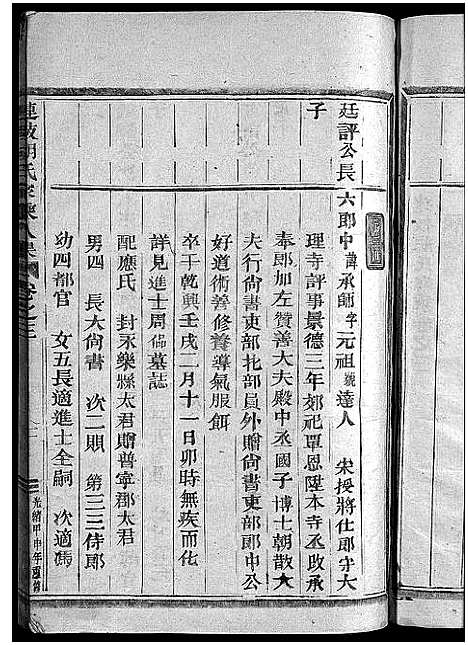 廷評公長
子
六郎中諱承師字元祖號達人 宋授將仕郎守大
理寺評事景德三年郊祀覃恩陞本寺丞改承
奉郎加左贊善大夫殿中丞國子博士朝散大
夫行尚書吏部比部員外贈尚書吏部郎中公
好道術善修養導氣服餌
卒于乾興壬戌二月十一日卯時無疾而化
詳見進士周 墓誌
配應氏 封永樂縣太君贈普寧郡太君
男四 長大尚書 次二則 第三三侍郎
幼四都官 女五長適進士全嗣 次適馮
胡氏家 卷之三
光緒甲申年重脩